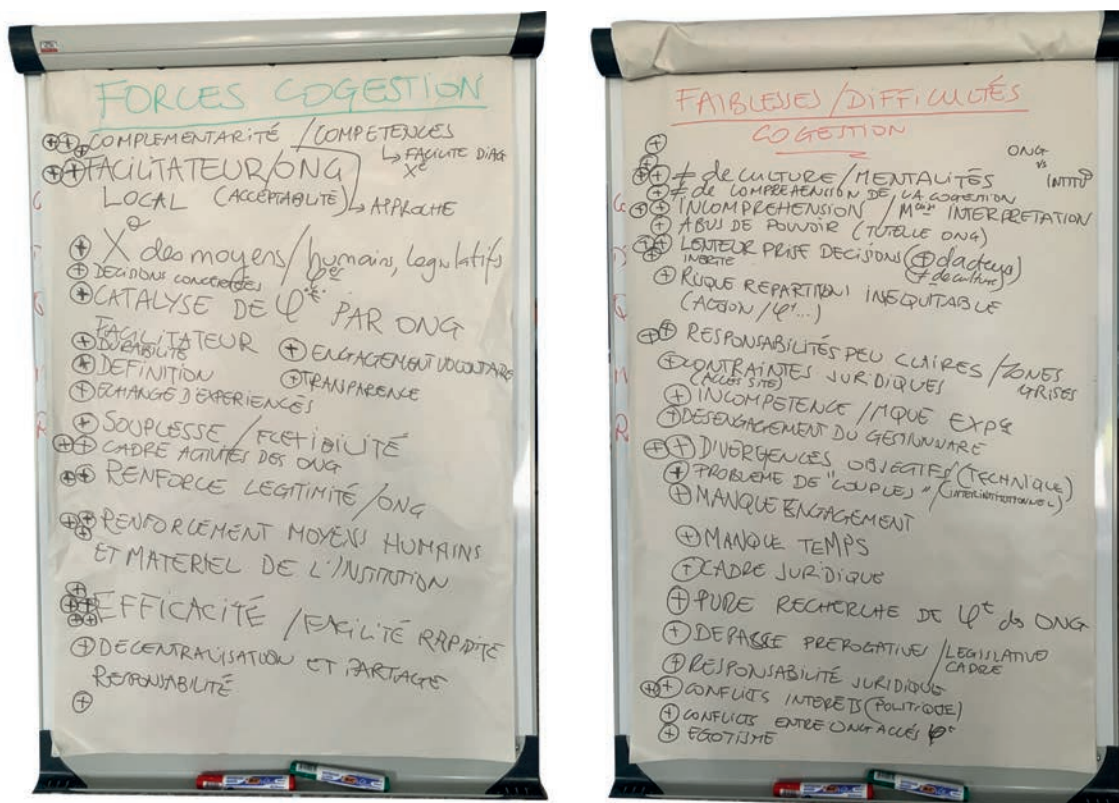 FORCES COGESTION
COMPLEMENTARITÉ / COMPETENCES
↳ FACILITE DIAG
FACILITATEUR/ONG
LOCAL (ACCEPTABILITÉ) ↳ APPROCHE
X des moyens / humains, legislatifs
DECISIONS CONCERTÉES
CATALYSE DE PAR ONG
FACILITATEUR
DURABILITÉ
ENGAGEMENT VOLONTAIRE
DEFINITION
TRANSPARENCE
ECHANGE D'EXPERIENCES
SOUPLESSE / FLEXIBILITÉ
CADRE ACTIVITÉS DES ONG
RENFORCE LEGITIMITÉ /ONG
RENFORCEMENT MOYENS HUMAINS
ET MATERIEL DE L'INSTITUTION
EFFICACITÉ / FACILITÉ RAPIDITÉ
DECENTRALISATION ET PARTAGE
RESPONSABILITÉ
FAIBLESSES / DIFFICULTÉS
COGESTION
ONG
vs
≠ de CULTURE / MENTALITÉS
≠ de COMPREHENSION DE LA COGESTION
INCOMPREHENSION / INTERPRETATION
ABUS DE POUVOIR (TUTELLE ONG)
LENTEUR PRISE DECISIONS (+ d'acteurs)
INERTIE
≠ de culture
RISQUE REPARTITION INEQUITABLE
(ACTION / ...)
RESPONSABILITÉS PEU CLAIRES / ZONES
GRISES
CONTRAINTES JURIDIQUES
(ACCÈS SITE)
INCOMPETENCE / MQUE EXP
DESENGAGEMENT DU GESTIONNAIRE
DIVERGENCES OBJECTIFS / (TECHNIQUE)
PROBLEME DE "COUPLES" / (INTERINSTITUTIONNEL)
MANQUE ENGAGEMENT
MANQUE TEMPS
CADRE JURIDIQUE
PURE RECHERCHE DE des ONG
DEPASSE PREROGATIVES / LEGISLATIVO
CADRE
RESPONSABILITÉ JURIDIQUE
CONFLICTS INTERETS (POLITIQUE)
CONFLICTS ENTRE ONG ACCÉS
EGOTISME